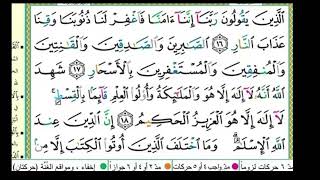 ٱلَّذِينَ يَقُولُونَ رَبَّنَآ إِنَّنَآ ءَامَنَّا فَٱغْفِرْ لَنَا ذُنُوبَنَا وَقِنَا
عَذَابَ ٱلنَّارِ ١٦ ٱلصَّـٰبِرِينَ وَٱلصَّـٰدِقِينَ وَٱلْقَـٰنِتِينَ
وَٱلْمُنفِقِينَ وَٱلْمُسْتَغْفِرِينَ بِٱلْأَسْحَارِ ١٧ شَهِدَ
ٱللَّهُ أَنَّهُۥ لَآ إِلَـٰهَ إِلَّا هُوَ وَٱلْمَلَـٰٓئِكَةُ وَأُو۟لُوا۟ ٱلْعِلْمِ قَآئِمًۢا بِٱلْقِسْطِ
لَآ إِلَـٰهَ إِلَّا هُوَ ٱلْعَزِيزُ ٱلْحَكِيمُ ١٨ إِنَّ ٱلدِّينَ عِندَ
ٱللَّهِ ٱلْإِسْلَـٰمُ وَمَا ٱخْتَلَفَ ٱلَّذِينَ أُوتُوا۟ ٱلْكِتَـٰبَ إِلَّا مِنۢ
مد ٦ حركات لزوماً مد ٢ أو ٤ أو ٦ جوازاً إخفاء، ومواقع الغنة (حركتان)
مد واجب ٤ أو ٥ حركات مد حركتان